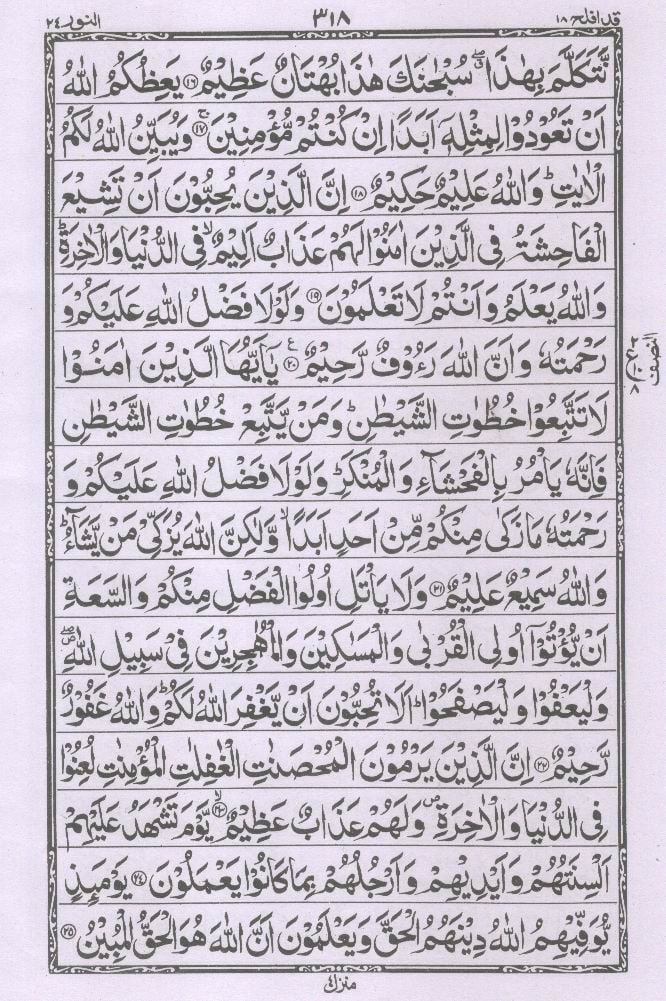 قد افلح ١٨ ٣١٨ النور ٢٤
نَّتَكَلَّمَ بِهٰذَا ۖ سُبْحٰنَكَ هٰذَا بُهْتَانٌ عَظِیْمٌ ۝١٦ یَعِظُكُمُ اللّٰهُ
اَنْ تَعُوْدُوْا لِمِثْلِهٖۤ اَبَدًا اِنْ كُنْتُمْ مُّؤْمِنِیْنَ ۝١٧ وَیُبَیِّنُ اللّٰهُ لَكُمُ
الْاٰیٰتِ ؕ وَاللّٰهُ عَلِیْمٌ حَكِیْمٌ ۝١٨ اِنَّ الَّذِیْنَ یُحِبُّوْنَ اَنْ تَشِیْعَ
الْفَاحِشَةُ فِی الَّذِیْنَ اٰمَنُوْا لَهُمْ عَذَابٌ اَلِیْمٌ ۙ فِی الدُّنْیَا وَالْاٰخِرَةِ ؕ
وَاللّٰهُ یَعْلَمُ وَاَنْتُمْ لَا تَعْلَمُوْنَ ۝١٩ وَلَوْلَا فَضْلُ اللّٰهِ عَلَیْكُمْ وَ
رَحْمَتُهٗ وَاَنَّ اللّٰهَ رَءُوْفٌ رَّحِیْمٌ ۝٢٠ ع یٰۤاَیُّهَا الَّذِیْنَ اٰمَنُوْا
النصف
لَا تَتَّبِعُوْا خُطُوٰتِ الشَّیْطٰنِ ؕ وَمَنْ یَّتَّبِعْ خُطُوٰتِ الشَّیْطٰنِ
فَاِنَّهٗ یَاْمُرُ بِالْفَحْشَآءِ وَالْمُنْكَرِ ؕ وَلَوْلَا فَضْلُ اللّٰهِ عَلَیْكُمْ وَ
رَحْمَتُهٗ مَا زَكٰی مِنْكُمْ مِّنْ اَحَدٍ اَبَدًا ۙ وَّلٰكِنَّ اللّٰهَ یُزَكِّیْ مَنْ یَّشَآءُ ؕ
وَاللّٰهُ سَمِیْعٌ عَلِیْمٌ ۝٢١ وَلَا یَاْتَلِ اُولُوا الْفَضْلِ مِنْكُمْ وَالسَّعَةِ
اَنْ یُّؤْتُوْۤا اُولِی الْقُرْبٰی وَالْمَسٰكِیْنَ وَالْمُهٰجِرِیْنَ فِیْ سَبِیْلِ اللّٰهِ ۖ
وَلْیَعْفُوْا وَلْیَصْفَحُوْا ؕ اَلَا تُحِبُّوْنَ اَنْ یَّغْفِرَ اللّٰهُ لَكُمْ ؕ وَاللّٰهُ غَفُوْرٌ
رَّحِیْمٌ ۝٢٢ اِنَّ الَّذِیْنَ یَرْمُوْنَ الْمُحْصَنٰتِ الْغٰفِلٰتِ الْمُؤْمِنٰتِ لُعِنُوْا
فِی الدُّنْیَا وَالْاٰخِرَةِ ۪ وَلَهُمْ عَذَابٌ عَظِیْمٌ ۝٢٣ یَّوْمَ تَشْهَدُ عَلَیْهِمْ
اَلْسِنَتُهُمْ وَاَیْدِیْهِمْ وَاَرْجُلُهُمْ بِمَا كَانُوْا یَعْمَلُوْنَ ۝٢٤ یَوْمَىِٕذٍ
یُّوَفِّیْهِمُ اللّٰهُ دِیْنَهُمُ الْحَقَّ وَیَعْلَمُوْنَ اَنَّ اللّٰهَ هُوَ الْحَقُّ الْمُبِیْنُ ۝٢٥
منزل ٤